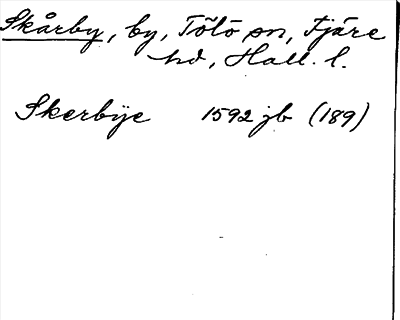 Skårby, by, Tölö sn, Fjäre
hd, Hall. l.
Skerbÿe 1592 jb (189)